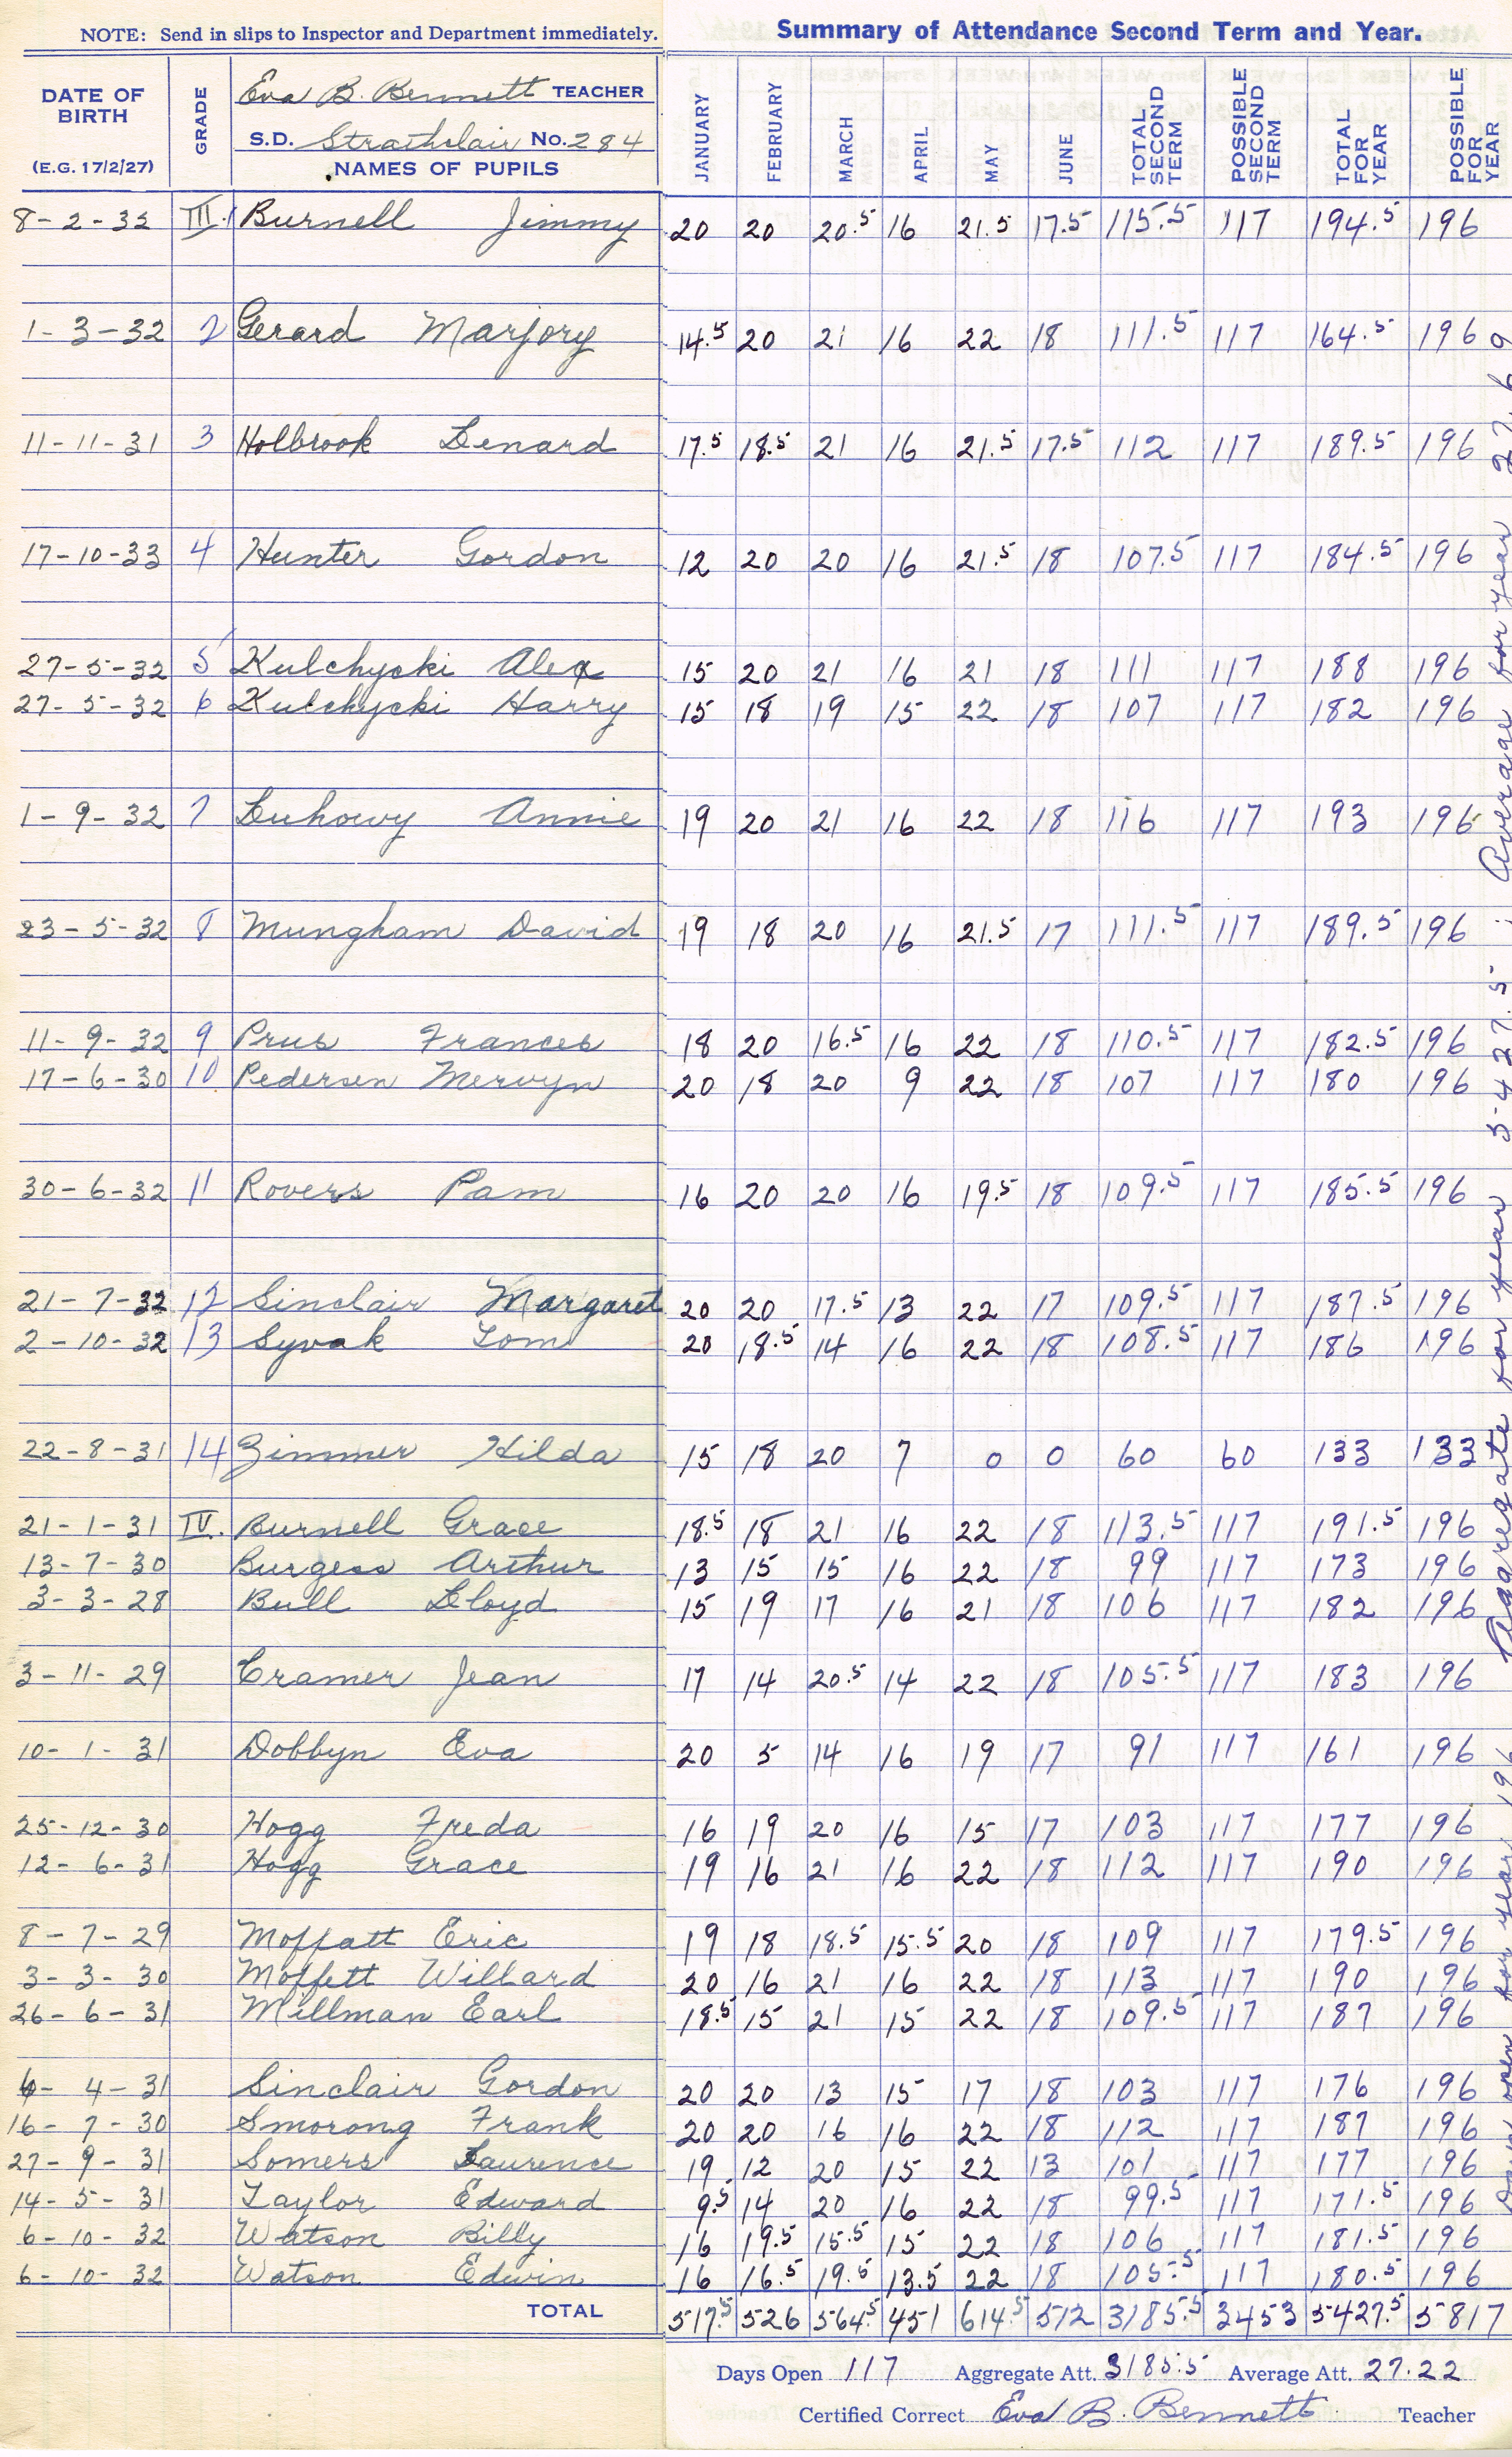 NOTE: Send in slips to Inspector and Department immediately.
Summary of Attendance Second Term and Year.
DATE OF BIRTH (E.G. 17/2/27) GRADE Eva B. Bennett TEACHER
S.D. Strathclair No. 284
NAMES OF PUPILS
JANUARY FEBRUARY MARCH APRIL MAY JUNE TOTAL SECOND TERM POSSIBLE SECOND TERM TOTAL FOR YEAR POSSIBLE FOR YEAR
8-2-32 III.1 Burnell Jimmy 20 20 20.5 16 21.5 17.5 115.5 117 194.5 196
1-3-32 2 Gerard Marjory 14.5 20 21 16 22 18 111.5 117 164.5 196
11-11-31 3 Holbrook Lenard 17.5 18.5 21 16 21.5 17.5 112 117 189.5 196
17-10-33 4 Hunter Gordon 12 20 20 16 21.5 18 107.5 117 184.5 196
27-5-32 5 Kulchycki Alex 15 20 21 16 21 18 111 117 188 196
27-5-32 6 Kulchycki Harry 15 18 19 15 22 18 107 117 182 196
1-9-32 7 Luhowy Annie 19 20 21 16 22 18 116 117 193 196
23-5-32 8 Mungham David 19 18 20 16 21.5 17 111.5 117 189.5 196
11-9-32 9 Prus Frances 18 20 16.5 16 22 18 110.5 117 182.5 196
17-6-30 10 Pedersen Mervyn 20 18 20 9 22 18 107 117 180 196
30-6-32 11 Rovers Pam 16 20 20 16 19.5 18 109.5 117 185.5 196
21-7-32 12 Sinclair Margaret 20 20 17.5 13 22 17 109.5 117 187.5 196
2-10-32 13 Syvak Tom 20 18.5 14 16 22 18 108.5 117 186 196
22-8-31 14 Zimmer Hilda 15 18 20 7 0 0 60 60 133 133
21-1-31 IV. Burnell Grace 18.5 18 21 16 22 18 113.5 117 191.5 196
13-7-30 Burgess Arthur 13 15 15 16 22 18 99 117 173 196
3-3-28 Bull Lloyd 15 19 17 16 21 18 106 117 182 196
3-11-29 Cramer Jean 17 14 20.5 14 22 18 105.5 117 183 196
10-1-31 Dobbyn Eva 20 5 14 16 19 17 91 117 161 196
25-12-30 Hogg Freda 16 19 20 16 15 17 103 117 177 196
12-6-31 Hogg Grace 19 16 21 16 22 18 112 117 190 196
8-7-29 Moffatt Eric 19 18 18.5 15.5 20 18 109 117 179.5 196
3-3-30 Moffett Willard 20 16 21 16 22 18 113 117 190 196
26-6-31 Millman Earl 18.5 15 21 15 22 18 109.5 117 187 196
6-4-31 Sinclair Gordon 20 20 13 15 17 18 103 117 176 196
16-7-30 Smorong Frank 20 20 16 16 22 18 112 117 187 196
27-9-31 Somers Laurence 19 12 20 15 22 13 101 117 177 196
14-5-31 Taylor Edward 9.5 14 20 16 22 18 99.5 117 171.5 196
6-10-32 Watson Billy 16 19.5 15.5 15 22 18 106 117 181.5 196
6-10-32 Watson Edwin 16 16.5 19.5 13.5 22 18 105.5 117 180.5 196
TOTAL 517.5 526 564.5 451 614.5 512 3185.5 3453 5427.5 5817
Days Open 117 Aggregate Att. 3185.5 Average Att. 27.22
Certified Correct Eva B. Bennett Teacher
open for year 196 Aggregate for year 5427.5 : Average for year 27.69